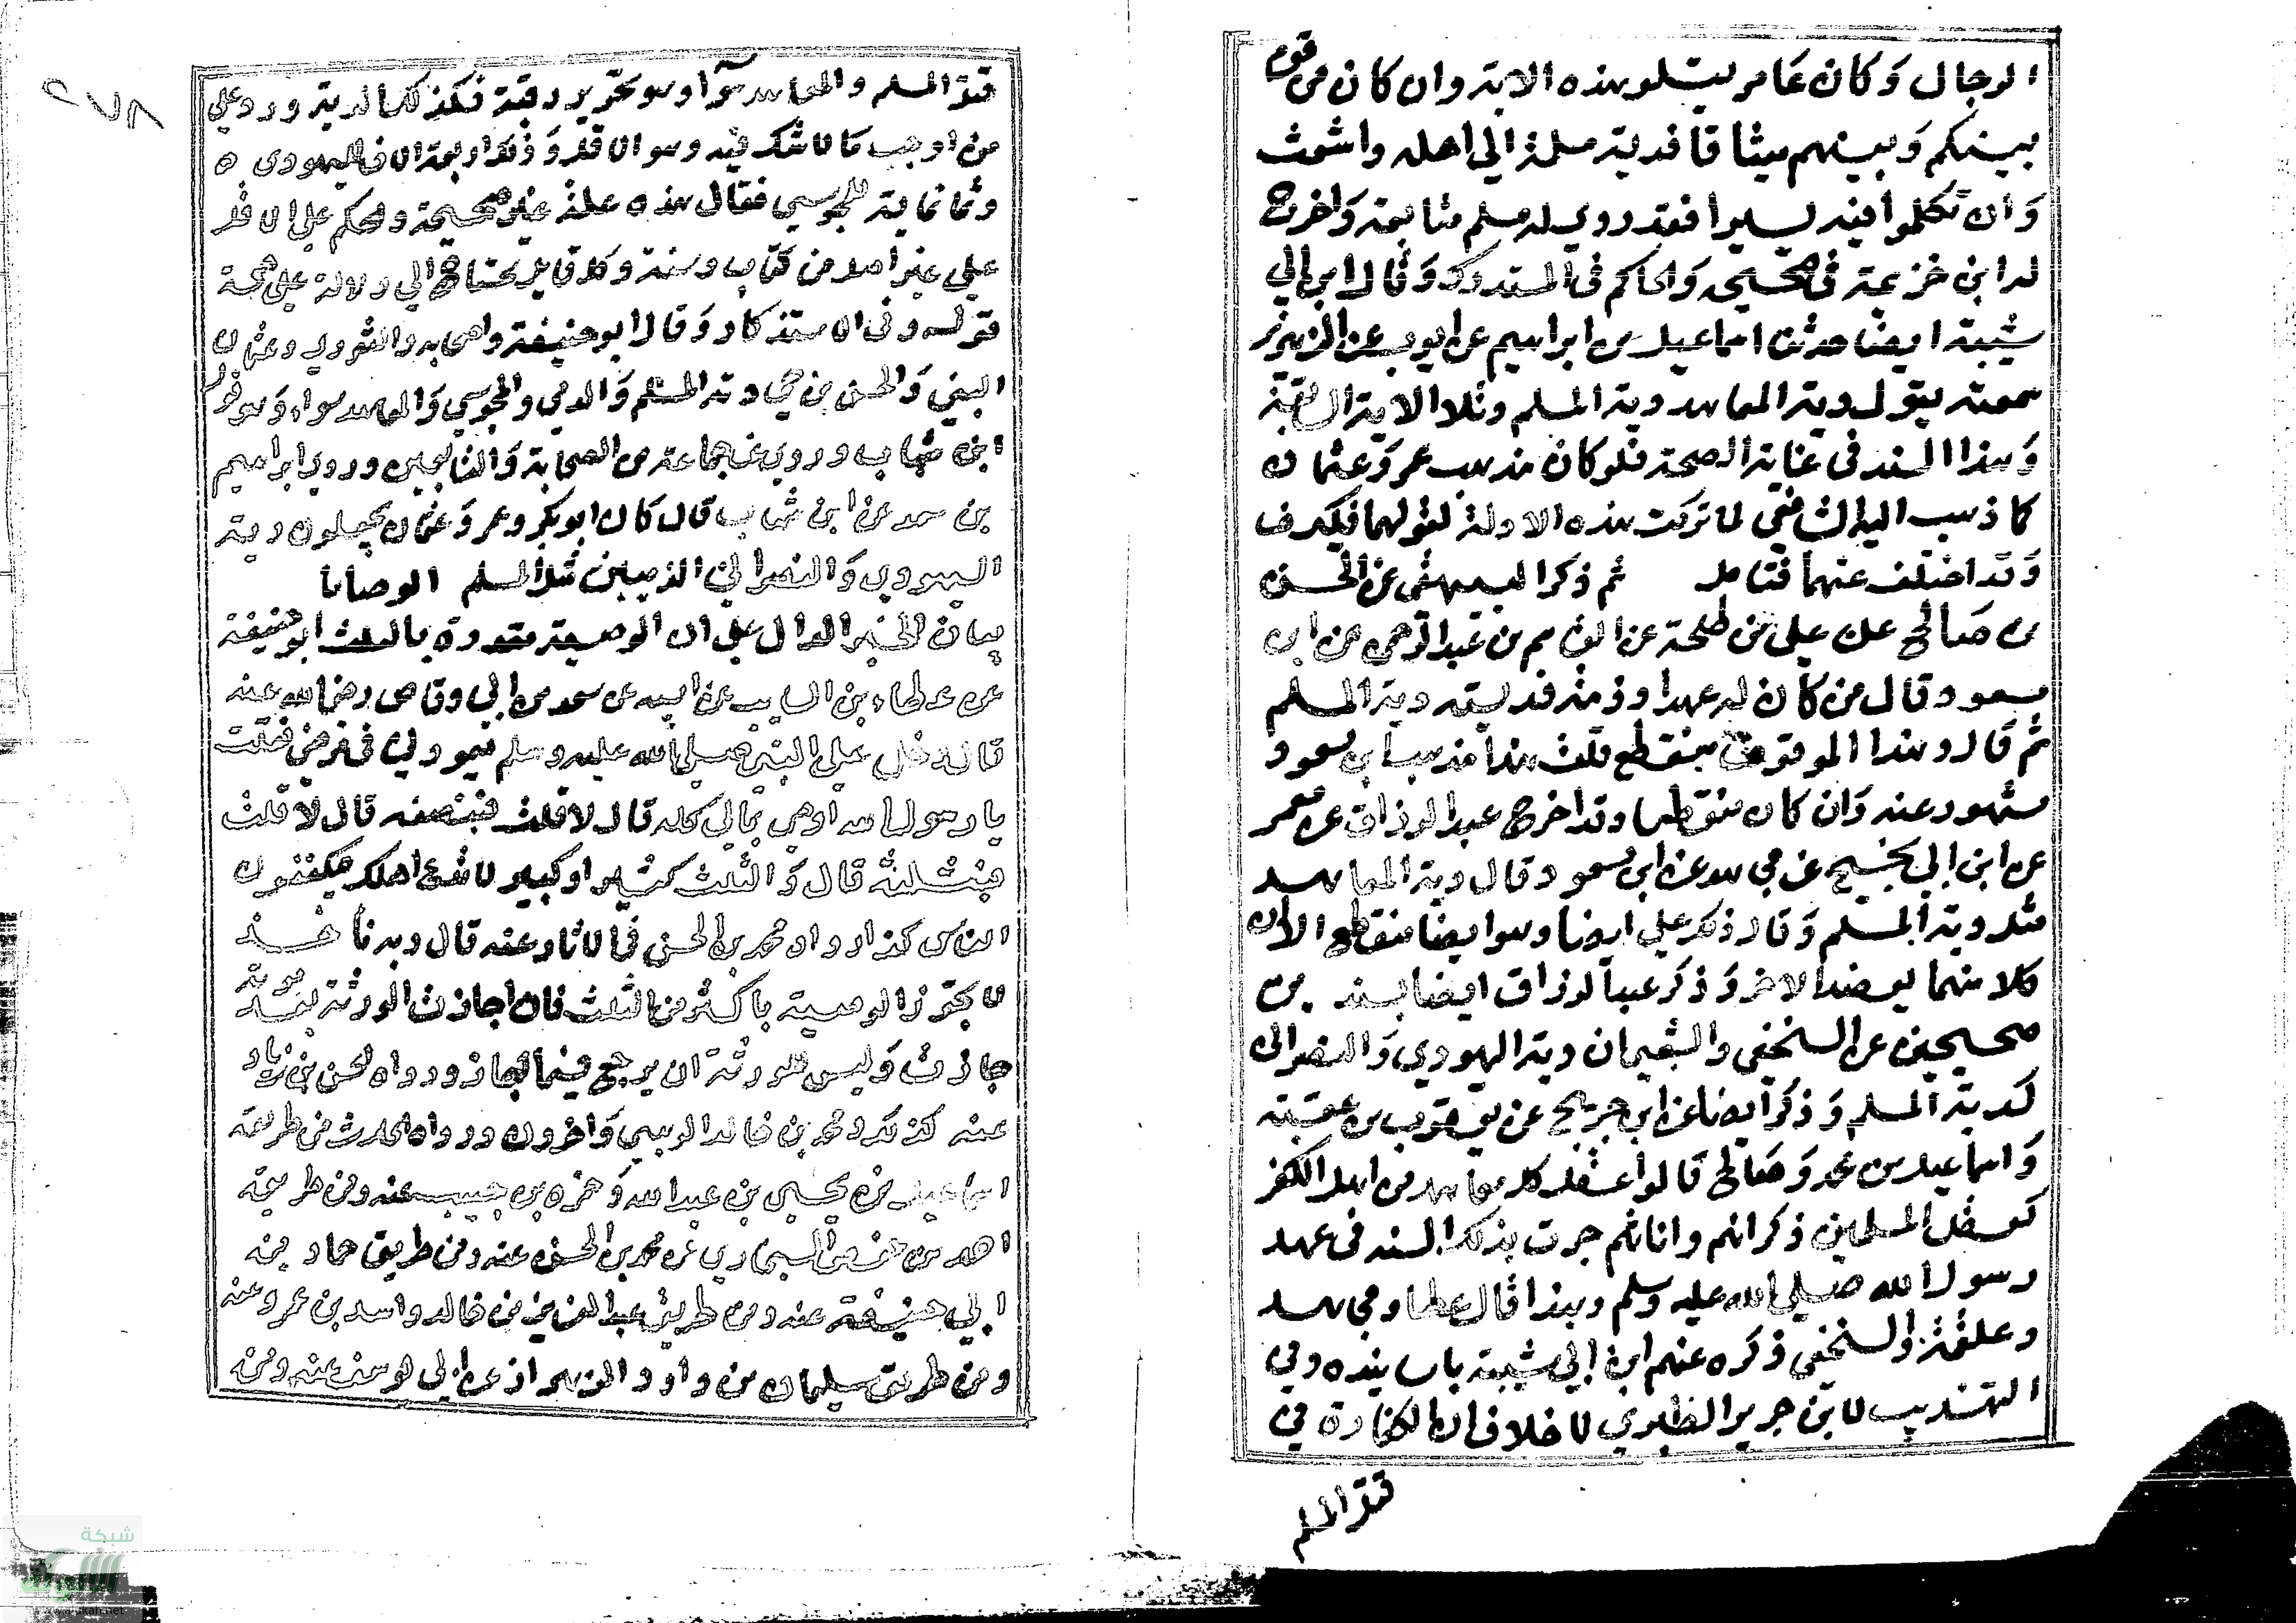 الرجال وكان عامر يتلو هذه الاية وان كان من قوم
بينكم وبينهم ميثاق فدية مسلمة الى اهله واشعث
وان تكلموا فيه يسيرا فقد روى له مسلم متابعة واخرج
له ابن خزيمة فى صحيحه والحاكم فى المستدرك وقال ابن ابي
شيبة ايضا حدثنا اسماعيل بن ابراهيم عن ايوب عن الزهرى
سمعته يقول دية المعاهد دية المسلم وتلا الاية السابقة
وهذا السند فى غاية الصحة فلو كان مذهب عمر وعثمان
كما ذهب اليه الشافعى لما تركت هذه الادلة لقولهما فكيف
وقد اختلف عنهما فتامل ثم ذكر البيهقى عن الحسن
بن صالح عن على بن طلحة عن القاسم بن عبد الرحمن عن ابن
مسعود قال من كان له عهد او ذمة فديته دية المسلم
ثم قال وهذا الموقوف منقطع قلت هذا مذهب ابن مسعود
مشهور عنه وان كان منقطعا وقد اخرج عبد الرزاق عن معمر
عن ابن ابي نجيح عن مجاهد عن ابن مسعود قال دية المعاهد
مثل دية المسلم وقال ذكر علي ايضا وهو ايضا منقطع الا ان
كلا منهما يعضد الاخر وذكر عبد الرزاق ايضا بسندين
صحيحين عن النخعى والشعبى ان دية اليهودي والنصرانى
كدية المسلم وذكر ايضا عن ابن جريج عن يعقوب بن عتبة
واسماعيل بن محمد وصالح قالوا عقل كل معاهد من اهل الكفر
كعقل المسلمين ذكرانهم واناثهم جرت بذلك السنة فى عهد
رسول الله صلى الله عليه وسلم وبهذا قال عطا ومجاهد
وعلقمة والنخعى ذكره عنهم ابن ابي شيبة باسانيده وفي
التهذيب لابن جرير الطبري لا خلاف ان الكفارة في
قتل المسلم
٢٧٨
قتل المسلم والمعاهد سوآ وهو تحرير رقبة فكذلك الدية ورد على
من اوجب ما لا شك فيه وهو الاقل وذلك اربعة الاف لليهودى
وثمانماية للمجوسي فقال هذه علة غير صحيحة ولا حكم على الاقل
على غير اصل من كتاب وسنة وكل قايل يحتاج الي دلالة علي صحة
قوله وفى الاستذكار وقال ابو حنيفة واصحابه والثوري وعثمان
البتي والحسن بن حي دية المسلم والذمي والمجوسي والمعاهد سواء وهو قول
ابن شهاب وروي عن جماعة من الصحابة والتابعين وروى ابراهيم
بن سعد عن ابن شهاب قال كان ابو بكر وعمر وعثمان يجعلون دية
اليهودي والنصراني الذميين مثل المسلم الوصايا
بيان الخبر الدال علي ان الوصية مقدرة بالثلث ابو حنيفة
عن عطاء بن السايب عن ابيه عن سعد بن ابي وقاص رضى الله عنه
قال دخل علي النبي صلى الله عليه وسلم يعودني في مرضي فقلت
يا رسول الله اوصي بمالي كله قال لا قلت فبنصفه قال لا قلت
فبثلثه قال والثلث كثير او كبير لا تدع اهلك يتكففون
الناس كذا رواه محمد بن الحسن في الاثار عنه قال وبه ناخذ
لا تجوز الوصية باكثر من الثلث فان اجازت الورثة بعد موته
جازت وليس للورثة ان يرجع فيما اجازوا ورواه الحسن بن زياد
عنه كذلك ومحمد بن خالد الوهبي واخرون ورواه الحارث من طريق
اسماعيل بن يحيى بن عبد الله وحمزة بن حبيب عنه ومن طريق
احمد بن حفص البخاري عن محمد بن الحسن عنه ومن طريق حماد بن
ابي حنيفة عنه ومن طريق عبد العزيز بن خالد واسد بن عمرو عنه
ومن طريق سليمان بن داود عن ابي يوسف عنه ومن
شبكة
الألوكة
www.alukah.net